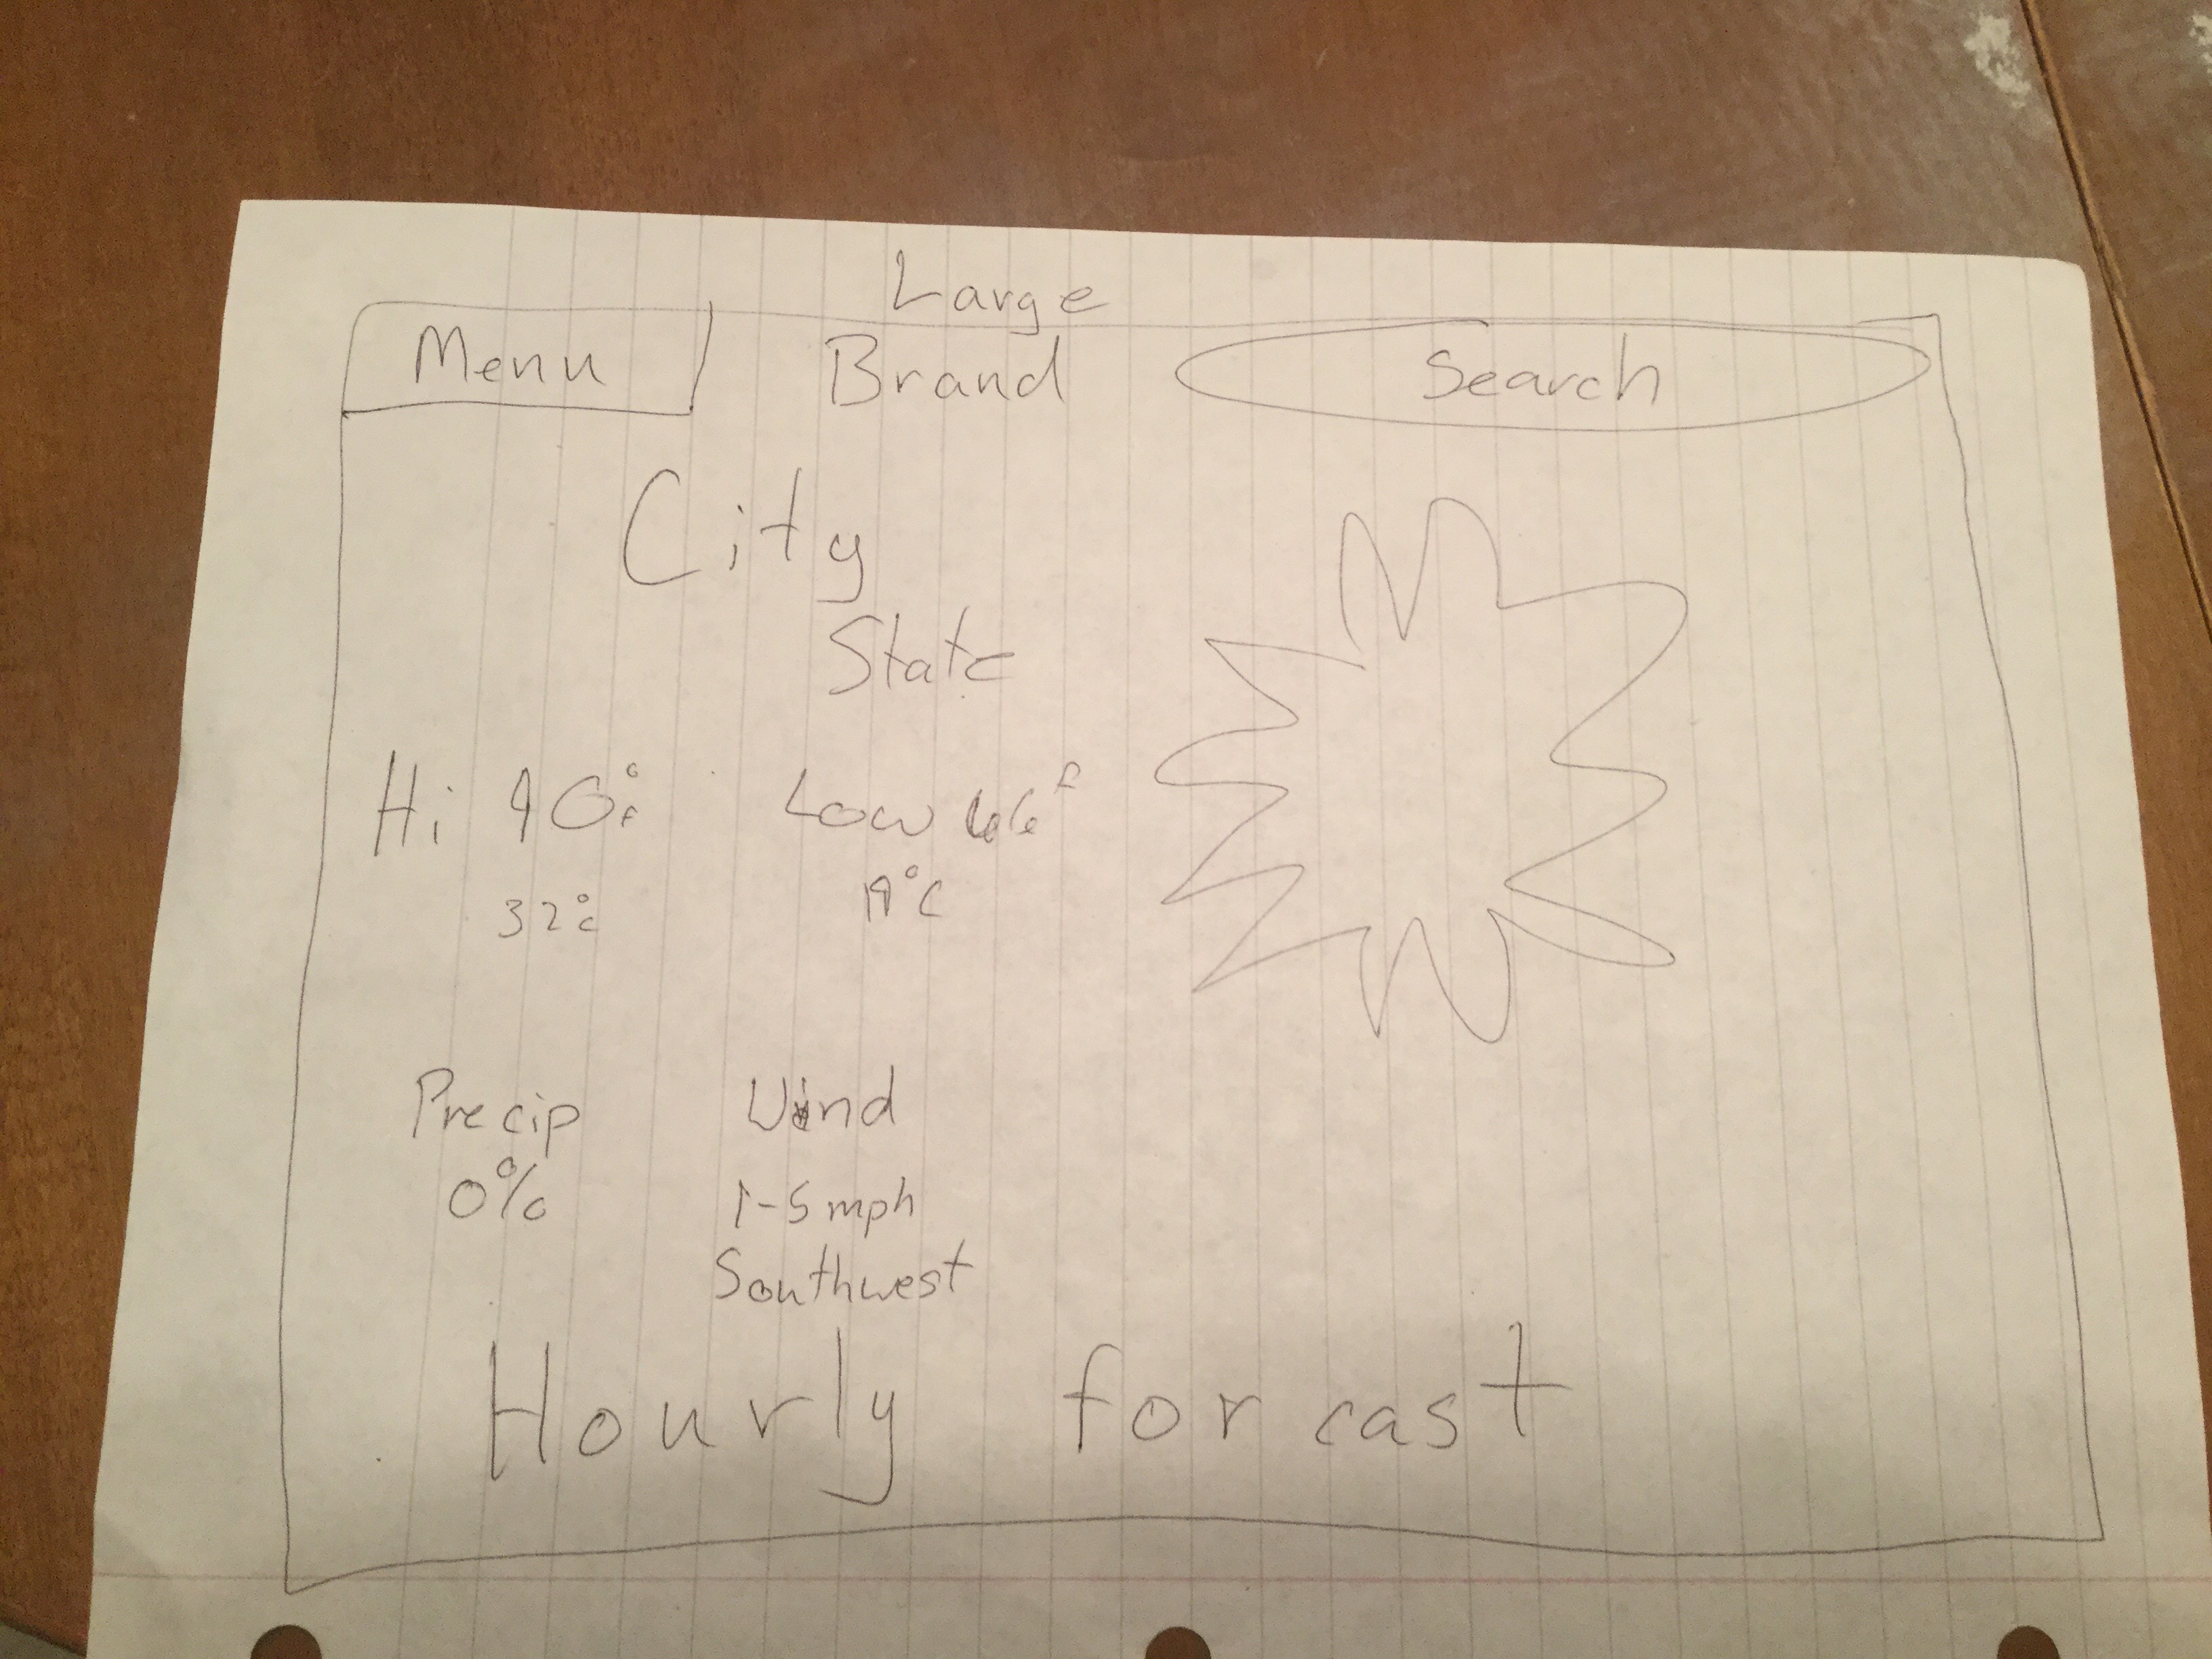 Large
Menu Brand Search
City
State
Hi: 90°F Low 66°F
32°C 19°C
Precip Wind
0% 1-5 mph
Southwest
Hourly forcast